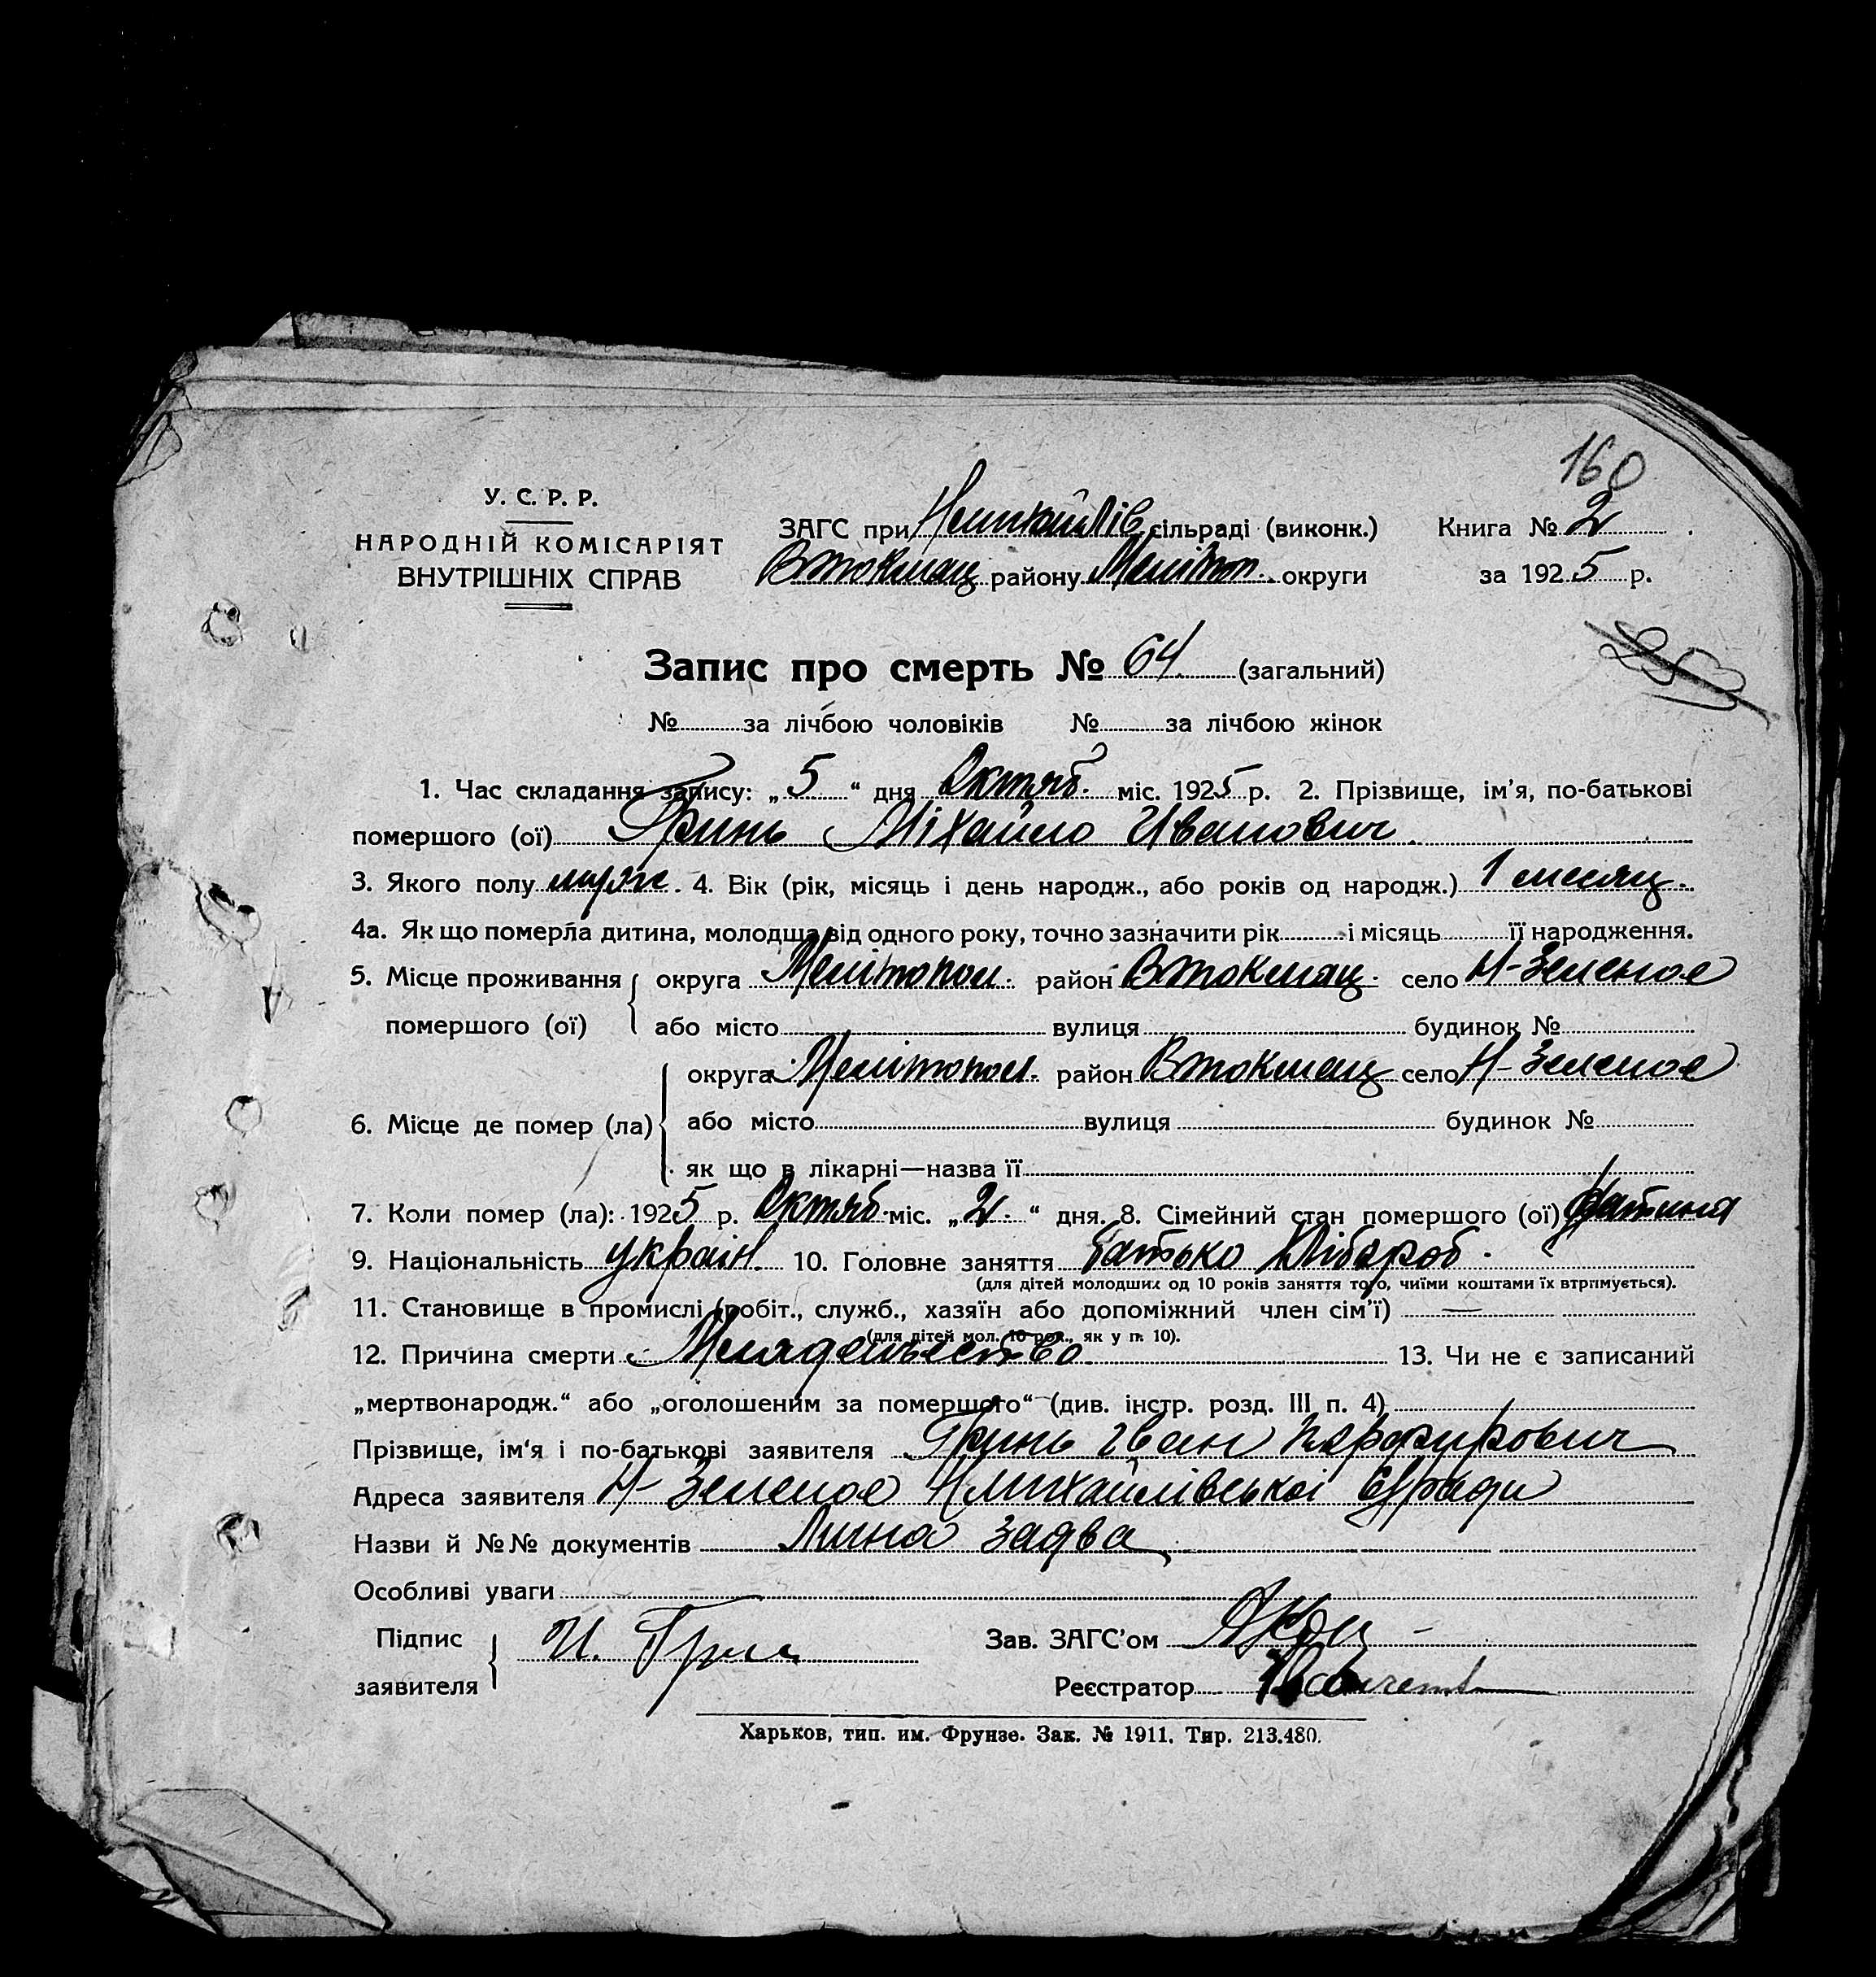 160
У. С. Р. Р.
НАРОДНІЙ КОМІСАРІЯТ
ВНУТРІШНІХ СПРАВ
ЗАГС при Нмихайлів сільраді (виконк.)
Книга № 2
Втокмац району Меліт̄оп. округи
за 1925 р.
Запис про смерть № 64 (загальний)
№ за лічбою чоловіків № за лічбою жінок
1. Час складання запису: „5“ дня Октяб. міс. 1925 р. 2. Прізвище, ім’я, по-батькові
помершого (ої) Гринь Міхайло Иванович
3. Якого полу муж. 4. Вік (рік, місяць і день народж., або років од народж.) 1 месяц.
4а. Як що померла дитина, молодша від одного року, точно зазначити рік і місяць її народження.
5. Місце проживання округа Мелітопол. район Втокмац. село Н-Зеленое
помершого (ої) або місто вулиця будинок №
округа Мелітопол. район Втокмац село Н-Зеленое
6. Місце де помер (ла) або місто вулиця будинок №
як що в лікарні—назва її
7. Коли помер (ла): 1925 р. Октяб. міс. „2.“ дня. 8. Сімейний стан помершого (ої) датина
9. Національність україн. 10. Головне заняття батько Хлібороб.
(для дітей молодших од 10 років заняття того, чиїми коштами їх втримується).
11. Становище в промислі (робіт., служб., хазяїн або допоміжний член сім’ї) —
(для дітей мол. 10 рок., як у п. 10).
12. Причина смерти Младенчество 13. Чи не є записаний
„мертвонародж.“ або „оголошеним за помершого“ (див. інстр. розд. III п. 4)
Прізвище, ім‘я і по-батькові заявителя Гринь Іван Порфирович
Адреса заявителя Н-Зеленое Нмихайлівської с/ради
Назви й №№ документів Лична задва
Особливі уваги
Підпис
заявителя И. Грин
Зав. ЗАГС’ом
Реєстратор
Харьков, тип. им. Фрунзе. Зак. № 1911. Тир. 213.480.